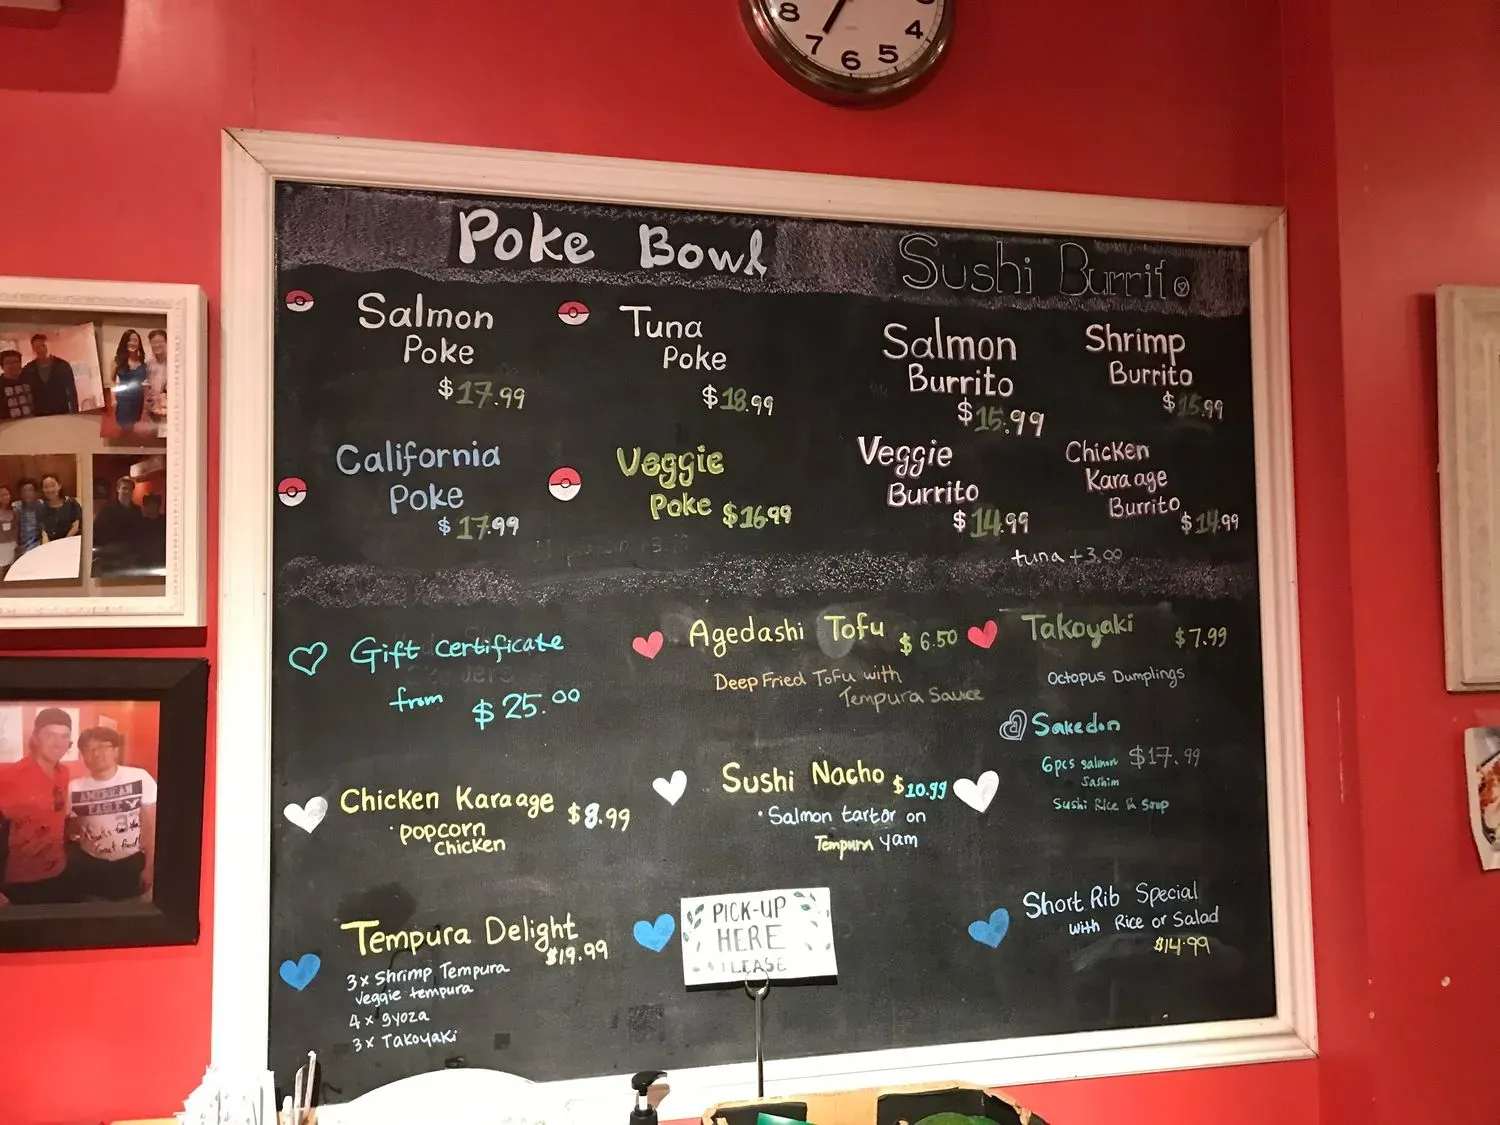 8
7
6
5
4
Poke Bowl
Salmon
Poke
$17.99
Tuna
Poke
$18.99
California
Poke
$17.99
Veggie
Poke $16.99
Sushi Burrito
Salmon
Burrito
$15.99
Shrimp
Burrito
$15.99
Veggie
Burrito
$14.99
Chicken
Karaage
Burrito
$14.99
tuna +3.00
Gift certificate
from $25.00
Agedashi Tofu $6.50
Deep Fried Tofu with
Tempura Sauce
Takoyaki $7.99
Octopus Dumplings
Sakedon
6pcs salmon $17.99
Sashim
Sushi Rice & Soup
Chicken Karaage $8.99
·popcorn
chicken
Sushi Nacho $10.99
·Salmon tartar on
Tempura yam
Tempura Delight
$19.99
3x Shrimp Tempura
veggie tempura
4x gyoza
3x Takoyaki
PICK-UP
HERE
PLEASE
Short Rib Special
with Rice or Salad
$14.99
AMERICAN